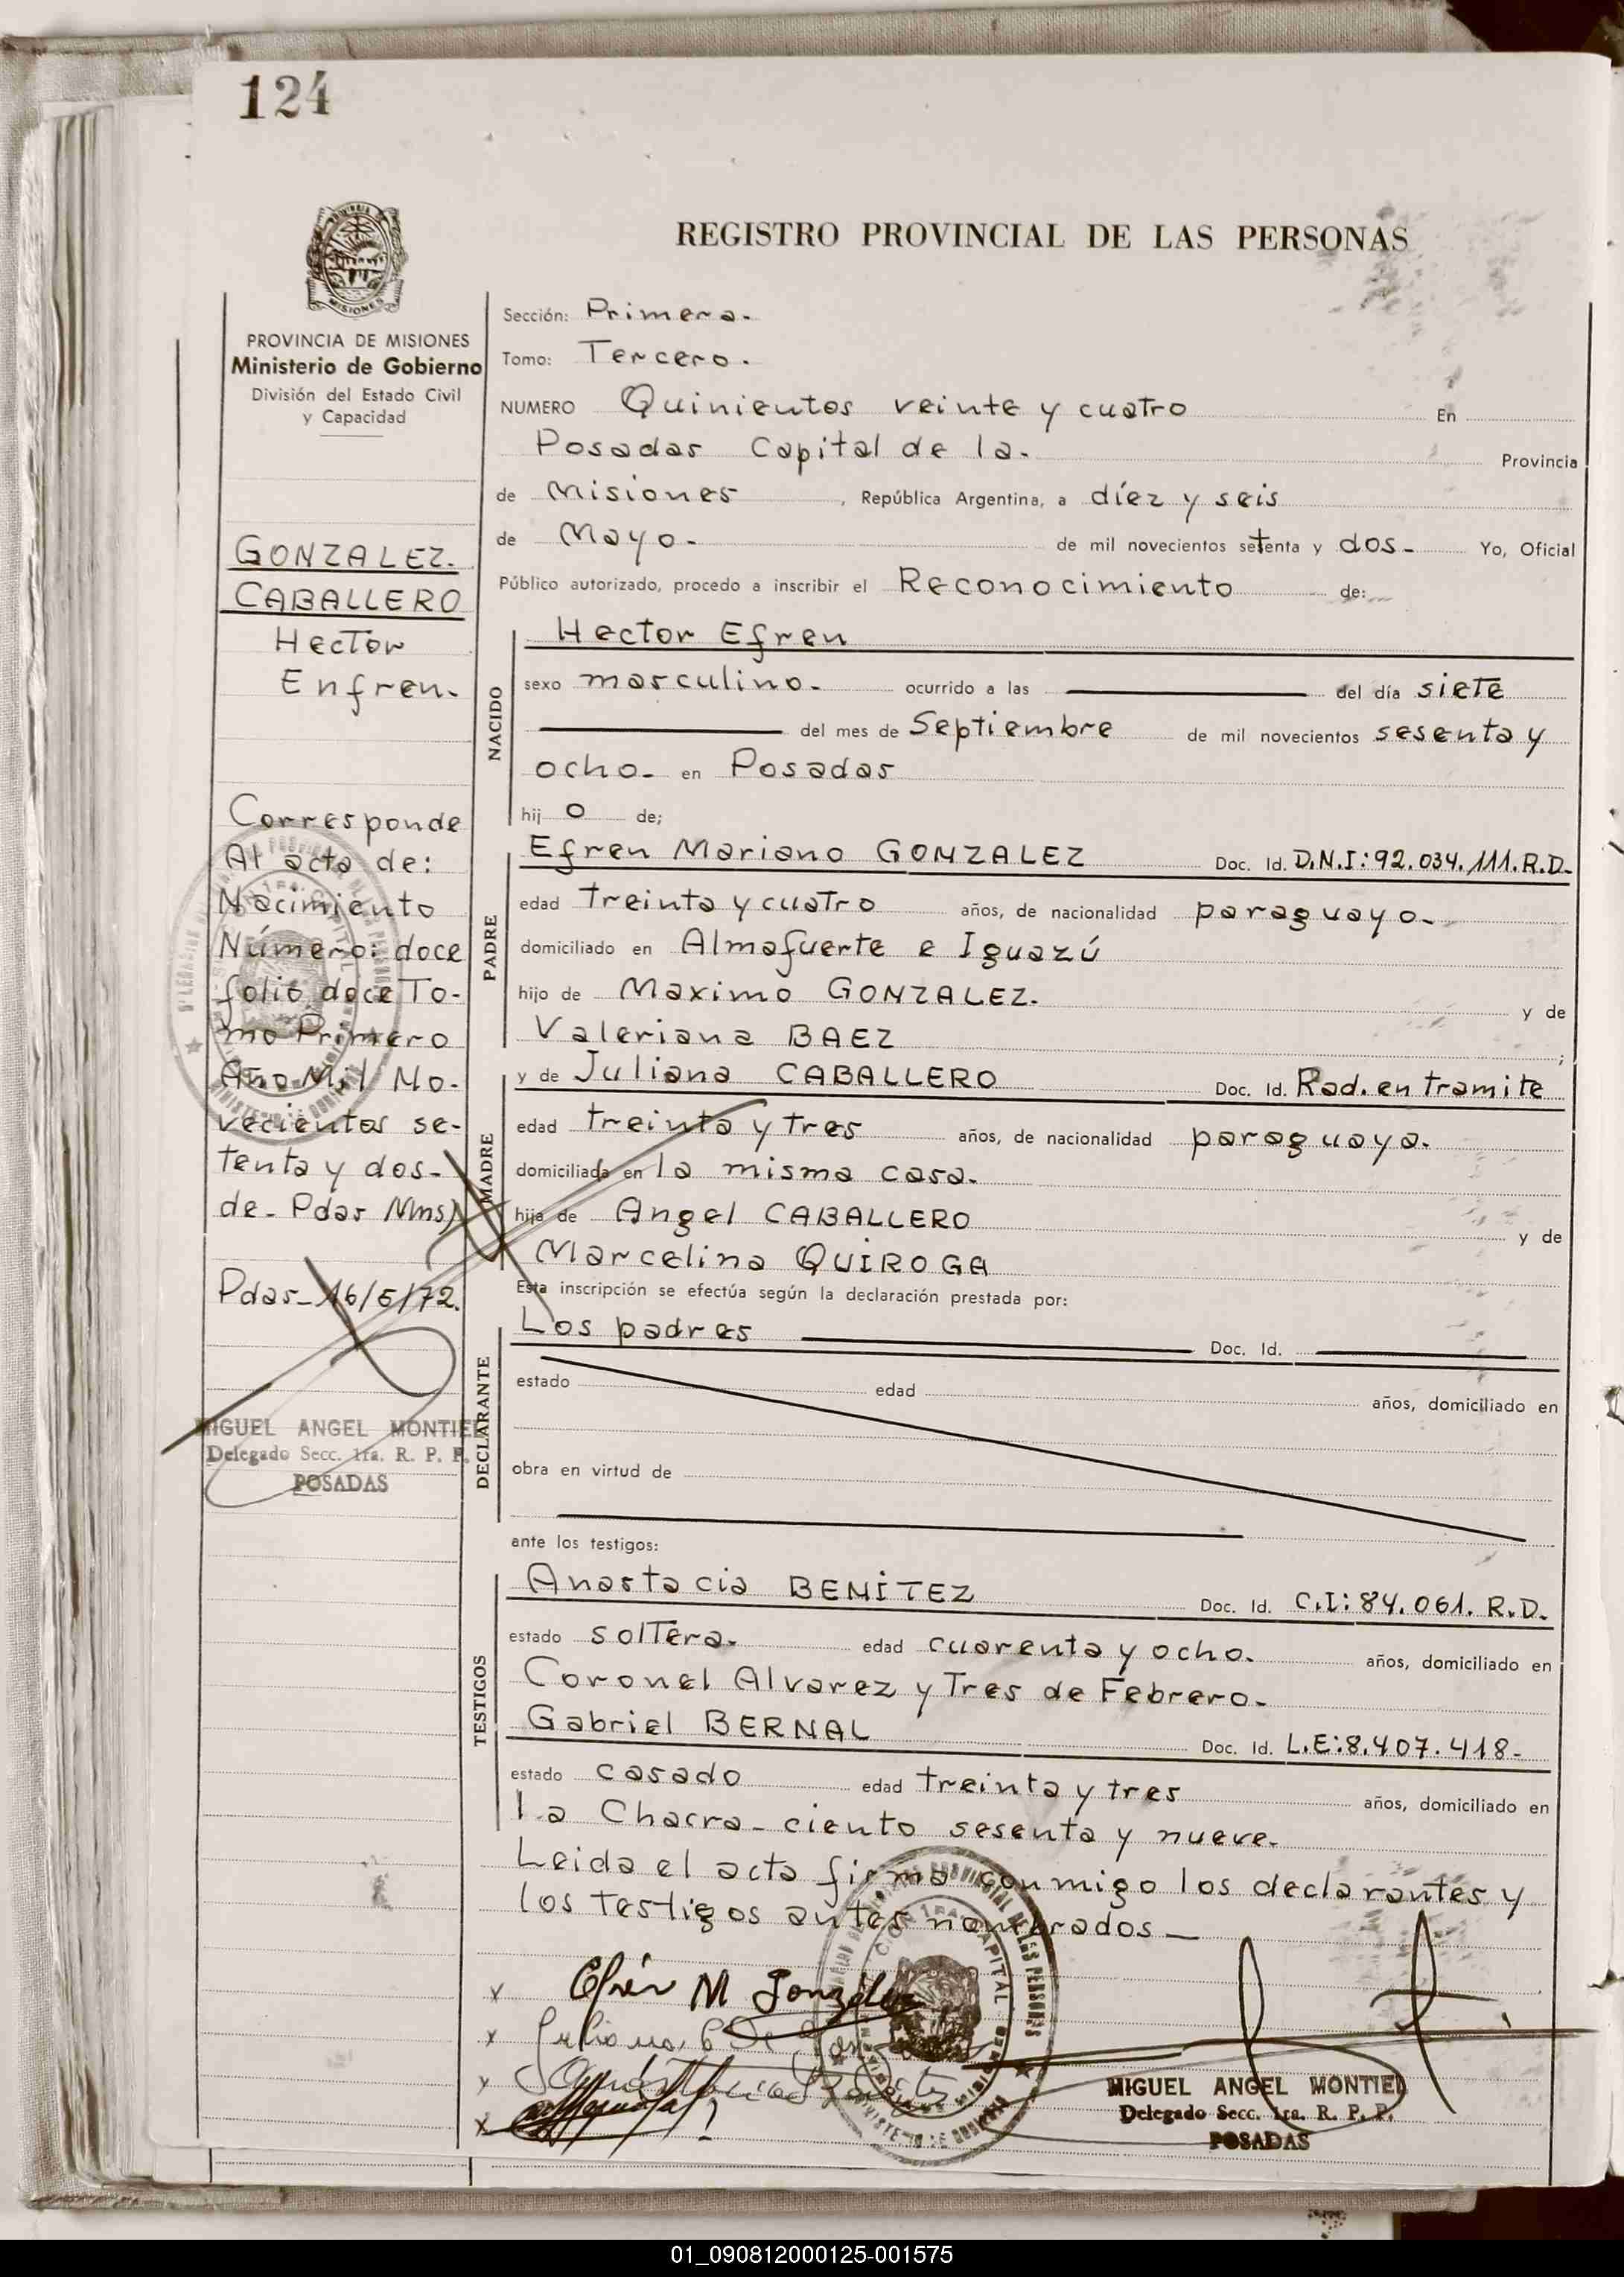 124
MISIONES
REGISTRO PROVINCIAL DE LAS PERSONAS
PROVINCIA DE MISIONES
Ministerio de Gobierno
División del Estado Civil
y Capacidad
GONZALEZ.
CABALLERO
Hector
Enfren.
Corresponde
Al acta de:
Nacimiento
Número: doce
folio doce To-
mo Primero
Año Mil No-
vecientos se-
tenta y dos-
de- Pdas Mns)
Pdas- 16/5/72.
MIGUEL ANGEL MONTIEL
Delegado Secc. 1ra. R. P. P.
POSADAS
Sección: Primera.
Tomo: Tercero.
NUMERO Quinientos veinte y cuatro En
Posadas Capital de la. Provincia
de Misiones , República Argentina, a díez y seis
de Mayo. de mil novecientos setenta y dos- Yo, Oficial
Público autorizado, procedo a inscribir el Reconocimiento de:
NACIDO
Hector Efren
sexo masculino. ocurrido a las del día siete
del mes de Septiembre de mil novecientos sesenta y
ocho- en Posadas
hij o de;
PADRE
Efren Mariano GONZALEZ Doc. Id. D.N.I: 92.034.111.R.D.
edad treinta y cuatro años, de nacionalidad paraguayo.
domiciliado en Almafuerte e Iguazú
hijo de Maximo GONZALEZ. y de
Valeriana BAEZ ;
MADRE
y de Juliana CABALLERO Doc. Id. Rad. en tramite
edad treinta y tres años, de nacionalidad paraguaya.
domiciliada en la misma casa.
hija de Angel CABALLERO y de
Marcelina QUIROGA
Esta inscripción se efectúa según la declaración prestada por:
DECLARANTE
Los padres Doc. Id.
estado edad años, domiciliado en
obra en virtud de
ante los testigos:
TESTIGOS
Anastacia BENÍTEZ Doc. Id. C.I: 84.061. R.D.
estado soltera. edad cuarenta y ocho. años, domiciliado en
Coronel Alvarez y Tres de Febrero.
Gabriel BERNAL Doc. Id. L.E: 8.407.418-
estado casado edad treinta y tres años, domiciliado en
la Chacra- ciento sesenta y nueve.
Leida el acta firma conmigo los declarantes y
los testigos antes nombrados-
x Efrén M González
x
x
x
MIGUEL ANGEL MONTIEL
Delegado Secc. 1ra. R. P. P.
POSADAS
01_090812000125-001575